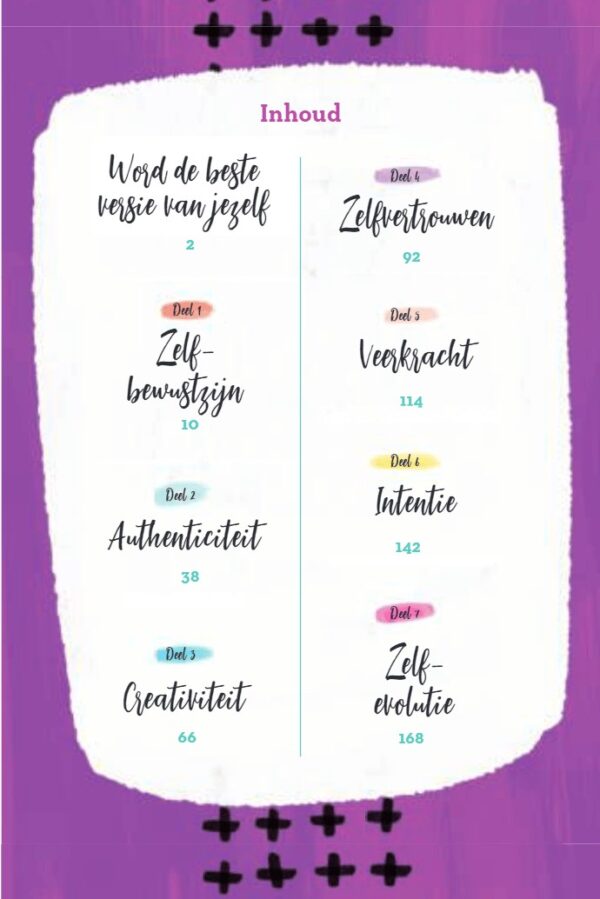 Inhoud
Word de beste
versie van jezelf
2
Deel 1
Zelf-
bewustzijn
10
Deel 2
Authenticiteit
38
Deel 3
Creativiteit
66
Deel 4
Zelfvertrouwen
92
Deel 5
Veerkracht
114
Deel 6
Intentie
142
Deel 7
Zelf-
evolutie
168